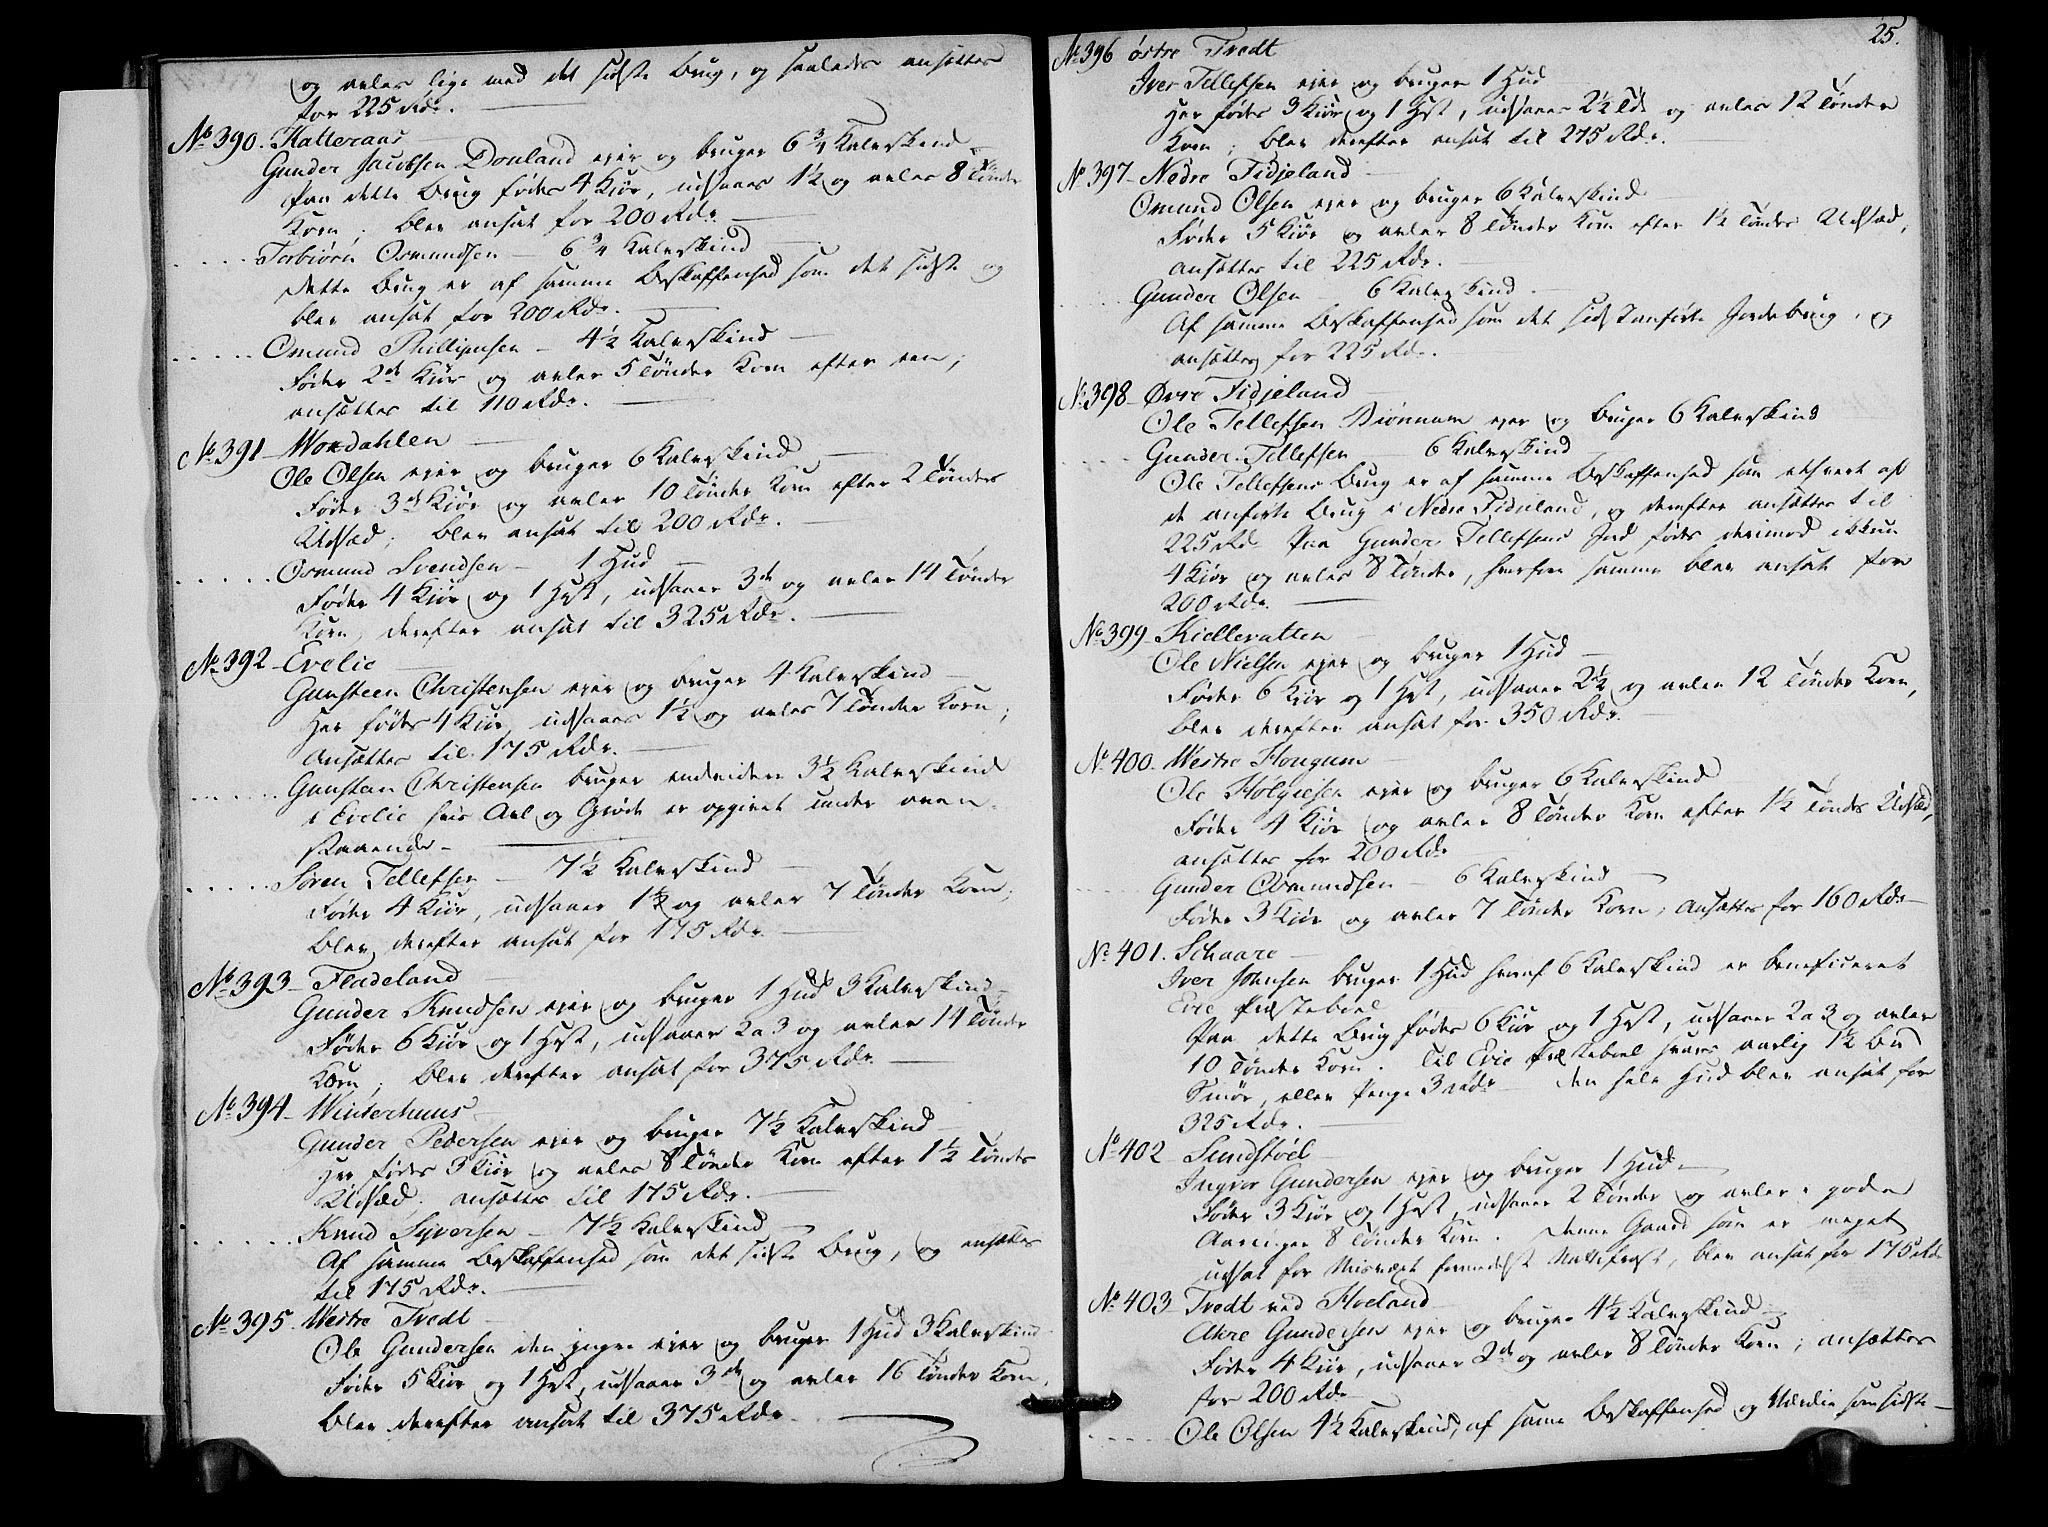 og avler lige med det sidste Brug, og saaledes ansættes
for 225 Rdr.
No 390. Katteraas
Gunder Jacobsen Douland ejer og bruger 6 3/4 Kalvskind
Paa dette Brug fødes 4 Kiør, udsaaes 1½ og avles 8 Tønder
Korn; blev ansat for 200 Rdr
Torbiørn Osmundsen – 6 3/4 Kalvskind
Dette Brug er af samme Beskaffenhed som det sidste og
blev ansat for 200 Rdr.
Omund Phillipusen – 4½ Kalvskind
Føder 2de Kiør og avler 5 Tønder Korn efter een;
ansættes til 110 Rdr.
No 391 Mondahlen
Ole Olsen ejer og bruger 6 Kalvskind
Føder 3de Kiør og avler 10 Tønder Korn efter 2 Tønders
Udsæd; blev ansat til 200 Rdr.
Osmund Svendsen – 1 Hud
Føder 4 Kiør og 1 Hest, udsaaer 3de og avler 14 Tønder
Korn, derefter ansat til 325 Rdr.
No 392 Evelie
Gunsteen Christensen ejer og bruger 4 Kalvskind
Her fødes 4 Kiør, udsaaes 1½ og avles 7 Tønder Korn;
Ansættes til 175 Rdr.
Gunstan Christensen bruger endvidere 3½ Kalvskind
i Evelie hvis Avl og Grøde er opgivet under oven-
staaende –
Søren Tellefsen – 7½ Kalvskind
Føder 4 Kiør, udsaaer 1½ og avler 7 Tønder Korn;
blev derefter ansat for 175 Rdr.
No 393 – Fladeland
Gunder Knudsen ejer og bruger 1 Hud 3 Kalvskind
Føder 6 Kiør og 1 Hest, udsaaer 2 a 3 og avler 14 Tønder
Korn; blev derefter ansat for 375 Rdr.
No 394 – Winterhuus
Gunder Pedersen ejer og bruger 7½ Kalvskind
Her fødes 3 Kiør og avles 8 Tønder Korn efter 1½ Tøndes
Udsæd; ansættes til 175 Rdr.
Knud Syversen – 7½ Kalvskind
Af samme Beskaffenhed som det sidste Brug, og ansættes
til 175 Rdr.
No 395. Westre Tvedt
Ole Gundersen den yngre ejer og bruger 1 Hud 3 Kalvskind
Føder 5 Kiør og 1 Hest, udsaaer 3de og avler 16 Tønder Korn,
blev derefter ansat til 375 Rdr.
25.
No 396 østre Tvedt
Iver Tellefsen ejer og bruger 1 Hud
Her fødes 3 Kiør og 1 Hest, udsaaes 2½ Td. og avles 12 Tønder
Korn; blev derefter ansat til 275 Rdr.
No 397 – Nedre Fidjeland
Omund Olsen ejer og bruger 6 Kalvskind
Føder 5 Kiør og avler 8 Tønder Korn efter 1½ Tøndes Udsæd,
ansættes til 225 Rdr.
Gunder Olsen – 6 Kalvskind
Af samme Beskaffenhed som det sidst anførte Jordebrug, og
ansættes for 225 Rdr.
No 398 – Øvre Fidjeland
Ole Tellefsen Biønnum ejer og bruger 6 Kalvskind
Gunder Tellefsen – 6 Kalvskind
Ole Tellefsens Brug er af samme Beskaffenhed som ethvert af
de anførte Brug i Nedre Fidjeland, og derefter ansættes til
225 Rd. Paa Gunder Tellefsens Jord fødes derimod ikkun
4 Kiør og avles 8 Tønder, hvorfor samme blev ansat for
200 Rdr.
No 399 – Kielleratten
Ole Nielsen ejer og bruger 1 Hud
Føder 6 Kiør og 1 Hest, udsaaer 2½ og avler 12 Tønder Korn,
blev derefter ansat for 350 Rdr.
No 400. Westre Hougum
Ole Holgiesen ejer og bruger 6 Kalvskind
Føder 4 Kiør og avler 8 Tønder Korn efter 1½ Tøndes Udsæd,
ansættes for 200 Rdr
Gunder Osmundsen – 6 Kalvskind
Føder 3 Kiør og avler 7 Tønder Korn; ansættes for 160 Rdr
No 401. Schaare
Iver Johnsen bruger 1 Hud hvoraf 6 Kalvskind er beneficeret
Evie Præstebøel
Paa dette Brug fødes 6 Kiør og 1 Hest, udsaaes 2 a 3 og avles
10 Tønder Korn. Til Evie Præstebøel svares aarlig 1½ Bd
Smør, eller Penge 3 Rdr. Den hele Hud blev ansat for
325 Rdr.
No 402 Sundstøel
Ingvor Gundersen ejer og bruger 1 Hud
Føder 3 Kiør og 1 Hest, udsaaer 2 Tønder og avler i gode
Aaringer 8 Tønder Korn. Denne Gaard som er meget
udsat for Misvæxt formedelst Nattefrost, blev ansat for 175 Rdr
No 403 Tvedt ved Hoeland
Akre Gundersen ejer og bruger 4½ Kalvskind
Føder 4 Kiør, udsaaer 2de og avler 8 Tønder Korn; ansættes
for 200 Rdr
Ole Olsen 4½ Kalvskind, af samme Beskaffenhed og Værdie som sidste –